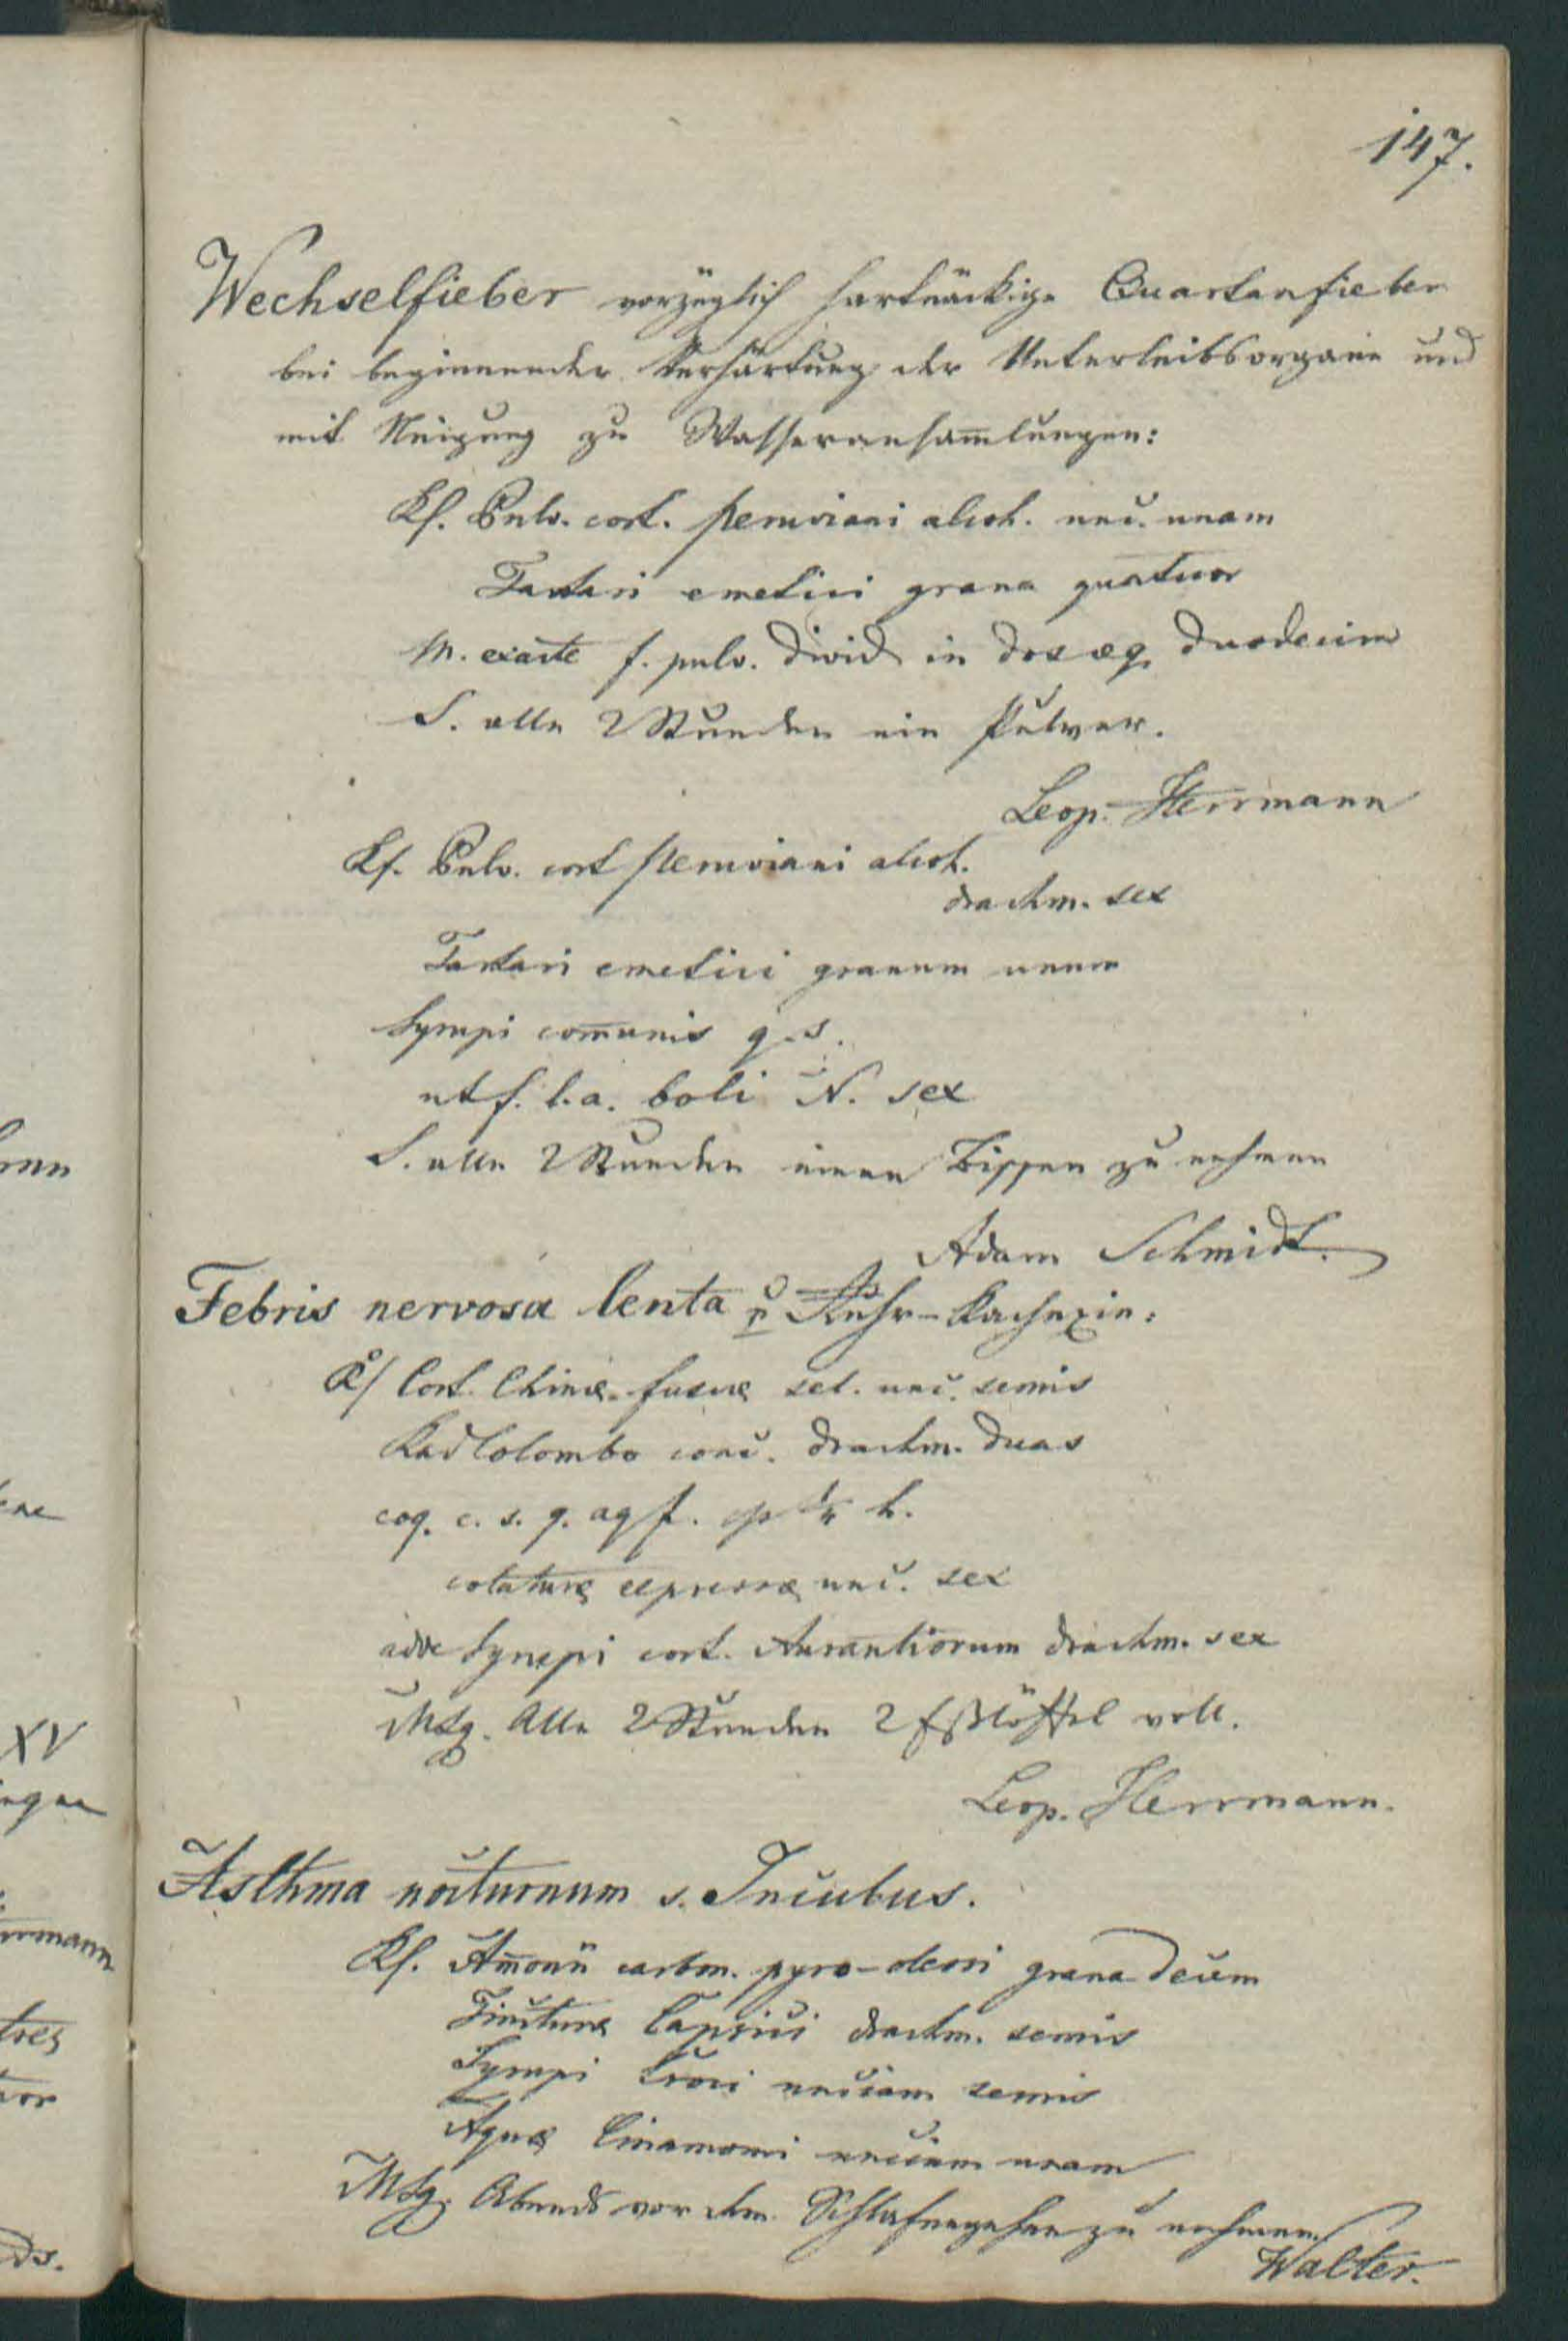 147.
Wechselfieber vorzüglich hartnäckige Quartanfieber
bei beginnender Verhärtung der Unterleibsorgane und
mit Neigung zu Wasseransam̅lungen:
Rf. Pulv. cort. peruviani alcoh. unc. unam
Tartari emetici grana quatuor
M. exacte f. pulv. divid in dos æq. duodecim
S. alle 2 Stunden ein Pulver.
Leop. Herrmann
Rf. Pulv. cort peruviani alcoh.
drachm. sex
Tartari emetici granum unum
Syrupi com̅unis q. s.
ut f. l. a. boli N. sex
S. alle 2 Stunden einen Bissen zu nehmen
Adam Schmidt.
Febris nervosa lenta Ruhr-Kachexie:
R/ Cort. Chinæ fuscæ sel. unc. semis
Rad Colombo conc. drachm. duas
coq. c. s. q. aq f. h.
colaturæ expressæ unc. sex
adde Syrupi cort. Aurantiorum drachm. sex
Mdg. Alle 2 Stunden 2 Eßlöffel voll.
Leop. Herrmann.
Asthma nocturnum s. Incubus.
Rf. Am̅onii carbon. pyro-oleosi grana decem
Tincturæ Capsici drachm. semis
Syrupi Croci unciam semis
Aquæ Cinamomi unciam unam
Mdg. Abends vor dem Schlafengehen zu nehmen.
Walter.
mann
XV
rrmann
tres
ds.